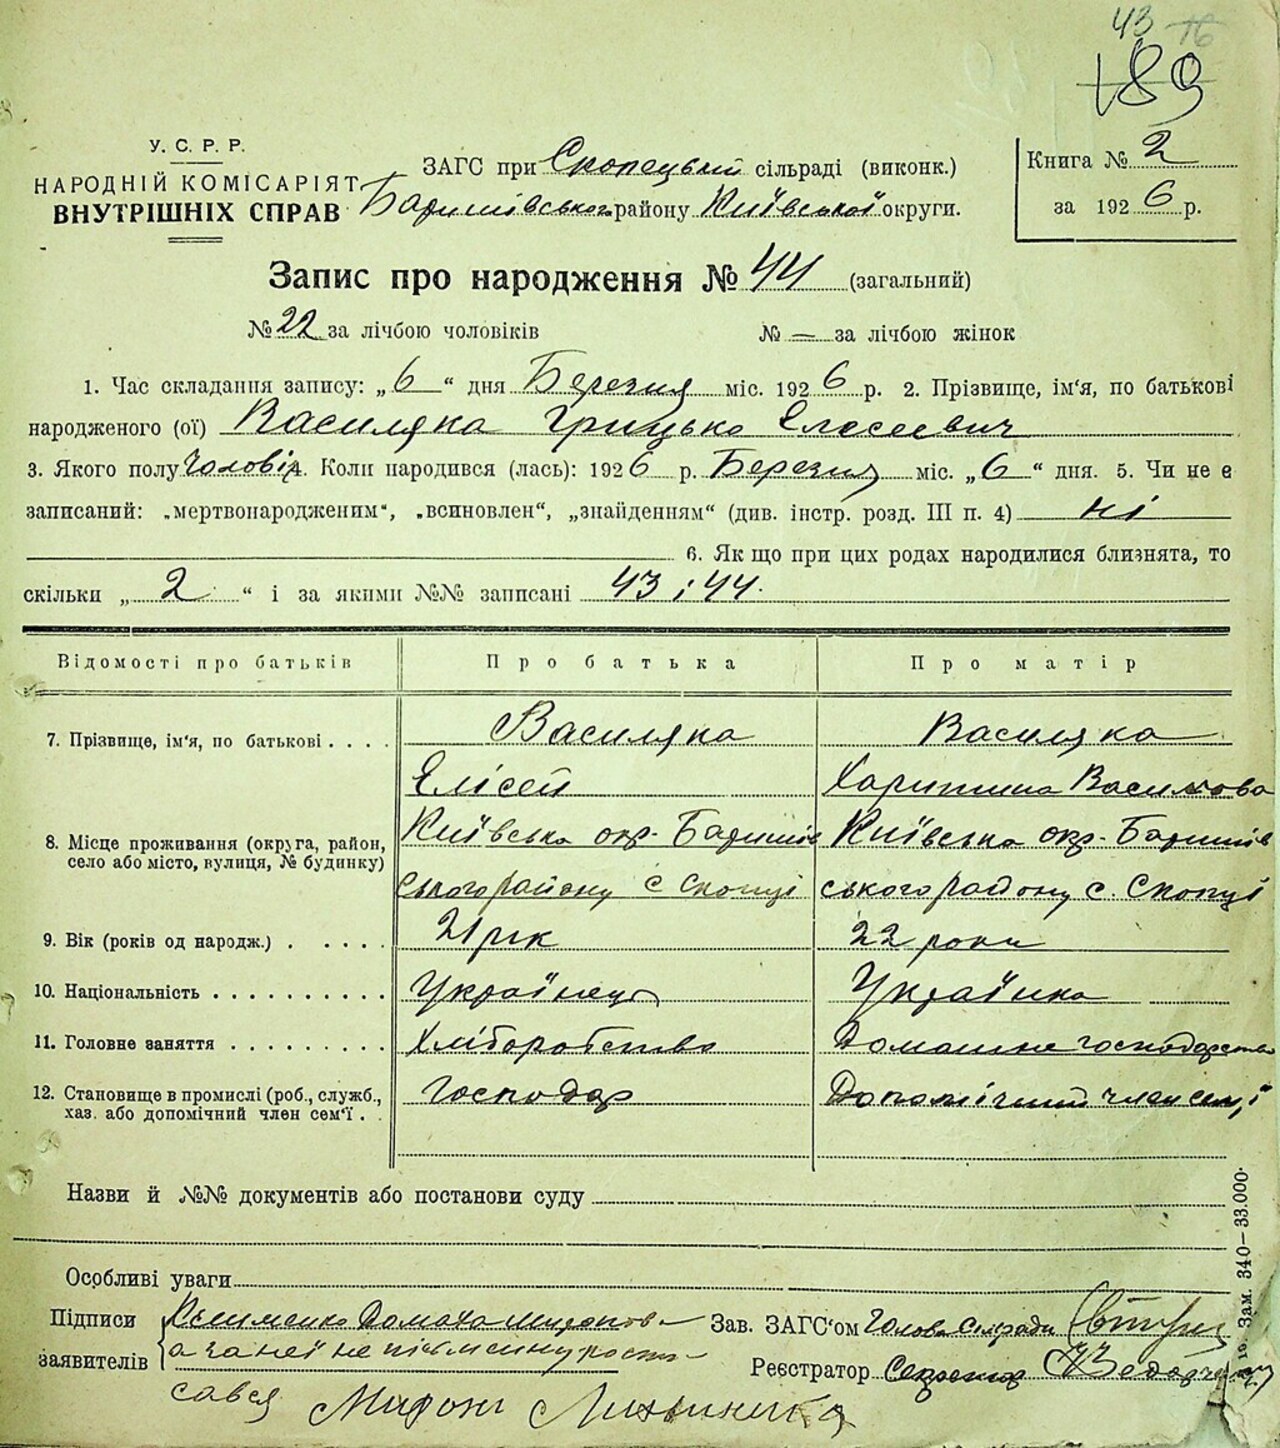 43 16
189
У. С. Р. Р.
НАРОДНІЙ КОМІСАРІЯТ
ВНУТРІШНІХ СПРАВ
ЗАГС при Скопецькій сільраді (виконк.)
Баришівського району Київської округи.
Книга № 2
за 1926 р.
Запис про народження № 44 (загальний)
№ 22 за лічбою чоловіків № — за лічбою жінок
1. Час складання запису: „6“ дня Березня міс. 1926 р. 2. Прізвище, ім‘я, по батькові
народженого (ої) Василяка Грицько Елесеевич
3. Якого полу Чоловіч. Коли народився (лась): 1926 р. Березня міс. „6“ дня. 5. Чи не є
записаний: „мертвонародженим“, „всиновлен“, „знайденням“ (див. інстр. розд. III п. 4) ні
6. Як що при цих родах народилися близнята, то
скільки „2“ і за якими №№ записані 43 і 44.
Відомості про батьків Про батька Про матір
7. Прізвище, ім‘я, по батькові . . . . Василяка Василяка
Елісей Харитина Василова
8. Місце проживання (округа, район, село або місто, вулиця, № будинку) Київська окр. Баришів Київська окр. Баришів
ського району с Скопці ського району с. Скопці
9. Вік (років од народж.) . . . . . 21 рік 22 роки
10. Національність . . . . . . . . . . Українець Українка
11. Головне заняття . . . . . . . . . Хліборобство Домашне господарство
12. Становище в промислі (роб., служб., хаз. або допомічний член сем‘ї . . Господар Допомічний член семї
Назви й №№ документів або постанови суду
Особливі уваги
Підписи Клименко Домаха Миронов Зав. ЗАГС‘ом Голова Сільради
заявителів а за неї не письменну роспи Реєстратор Секретар
сався Мирон
Зам. 340—33.000.